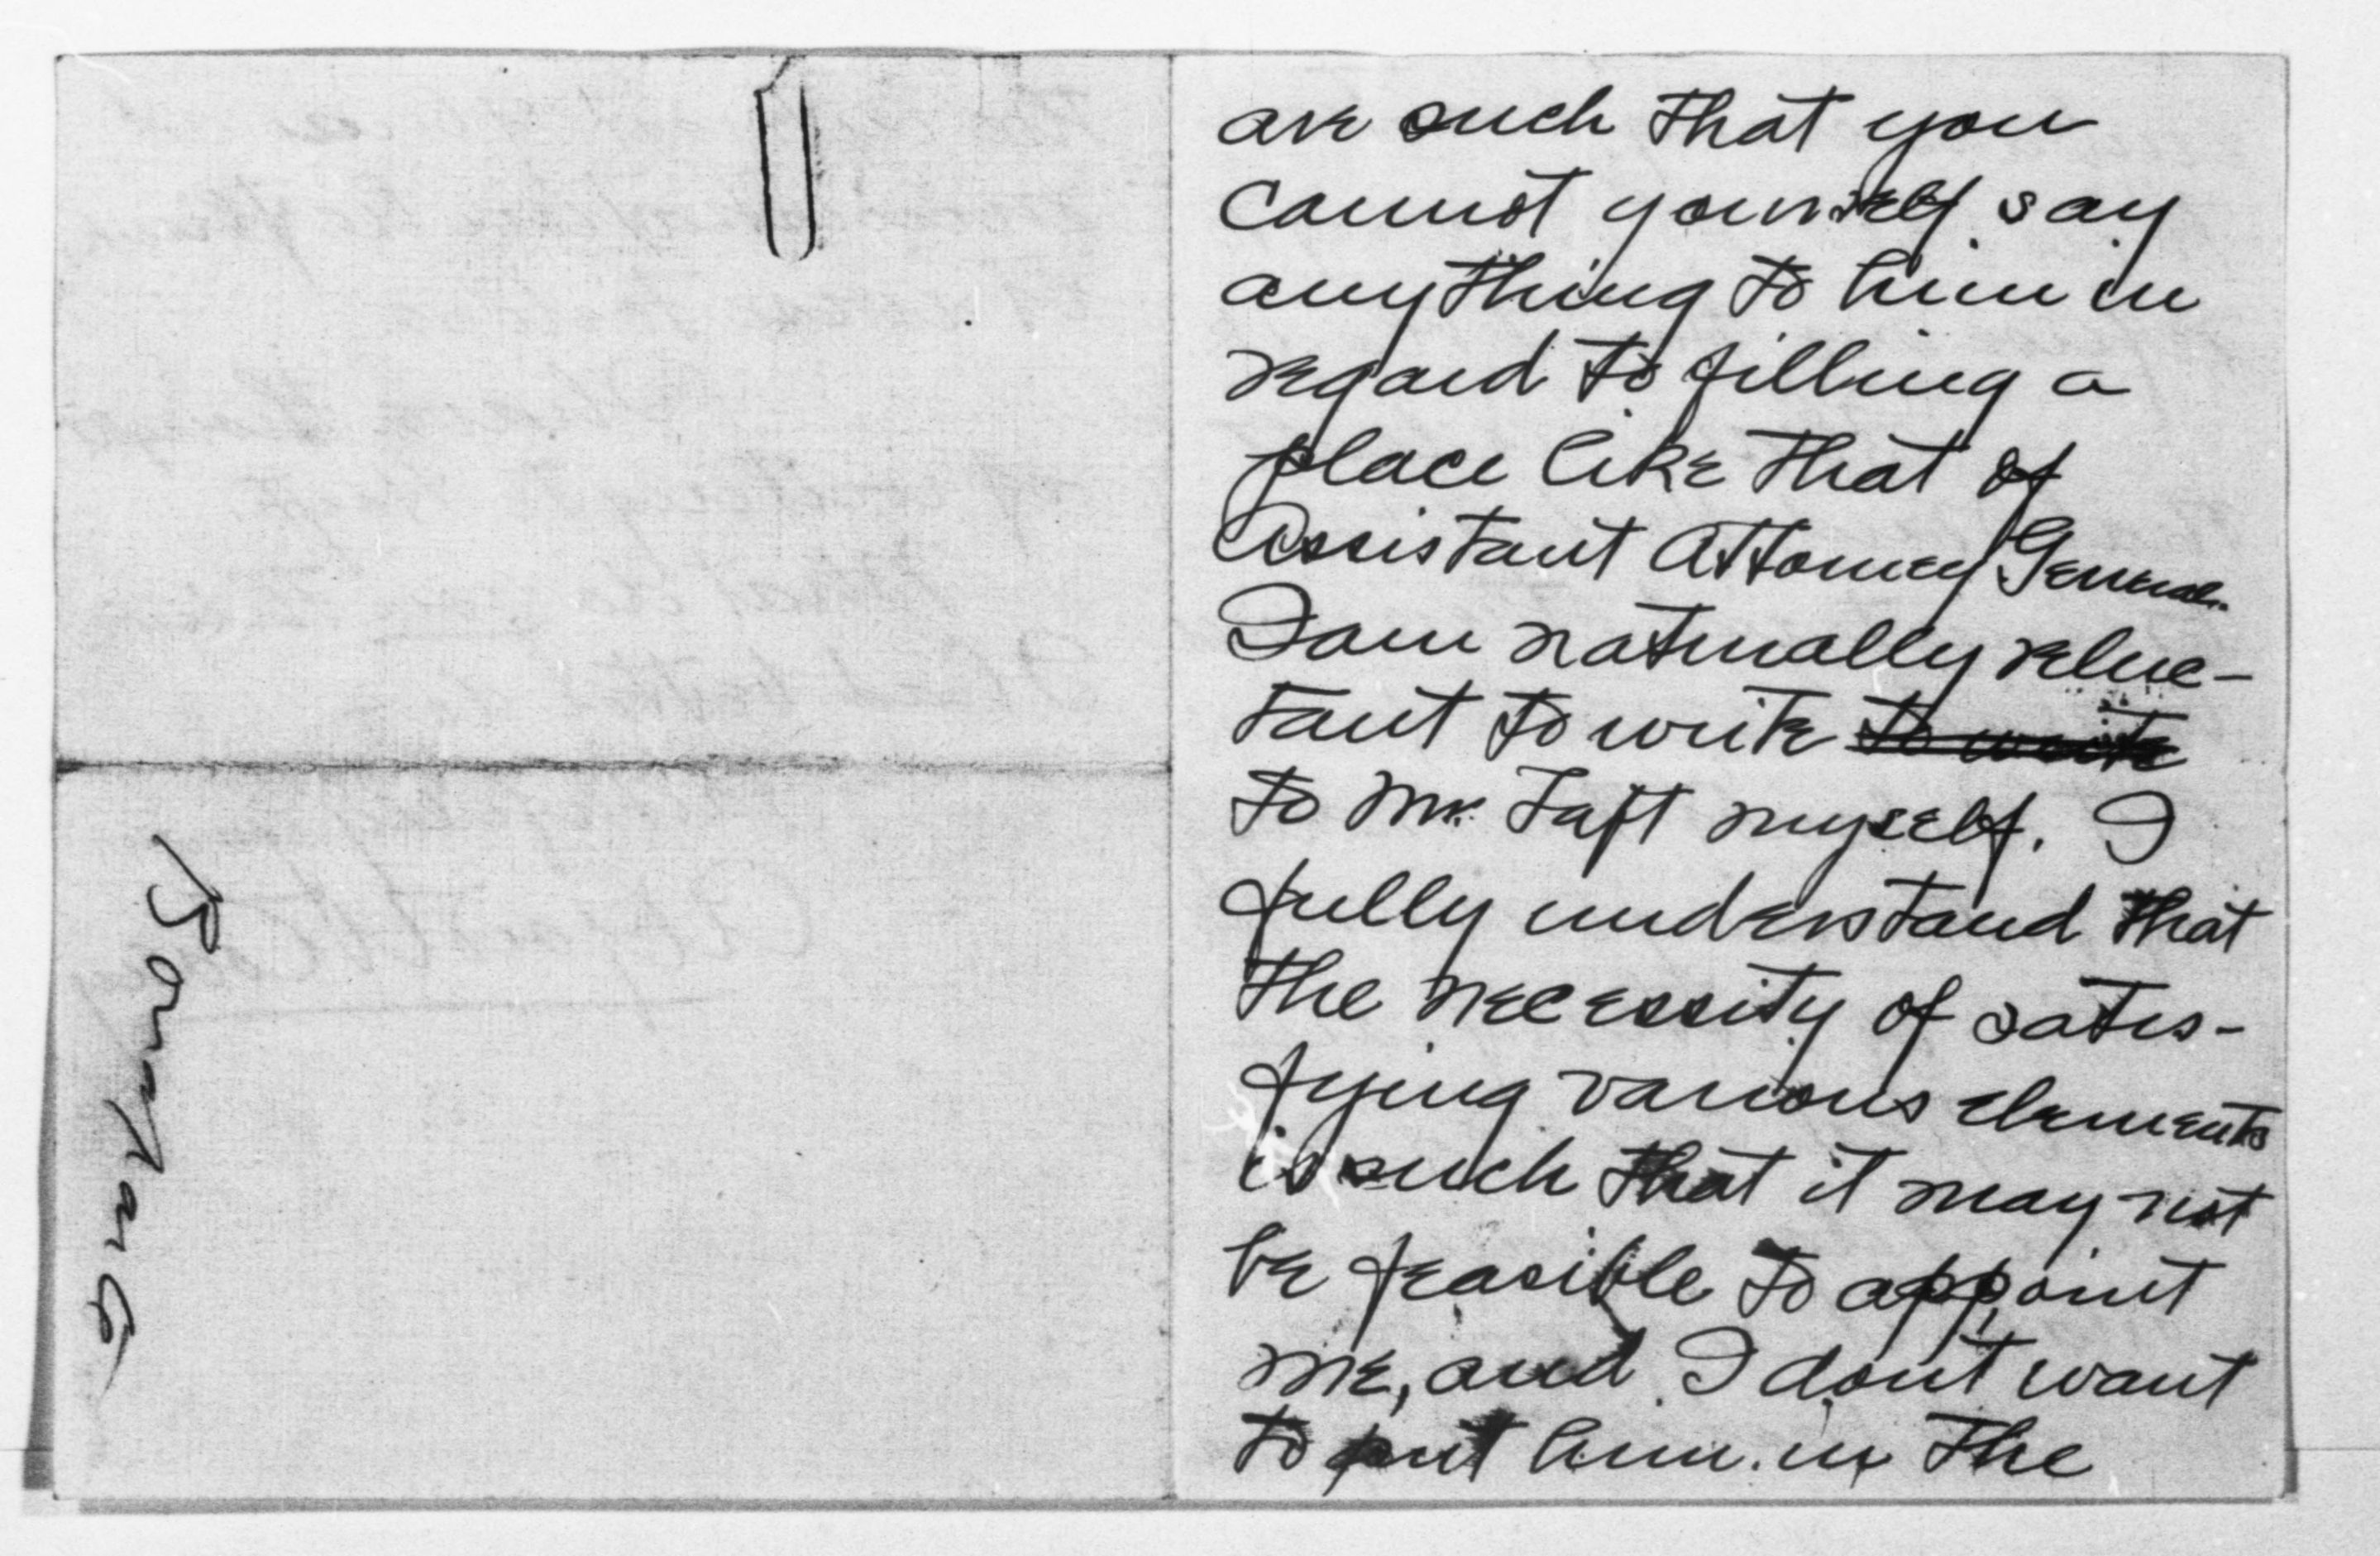 are such that you
cannot yourself say
anything to him in
regard to filling a
place like that of
Assistant Attorney General.
I am naturally reluc-
tant to write to write
to Mr. Taft myself. I
fully understand that
the necessity of satis-
fying various elements
is such that it may not
be feasible to appoint
me, and I dont want
to put him in the